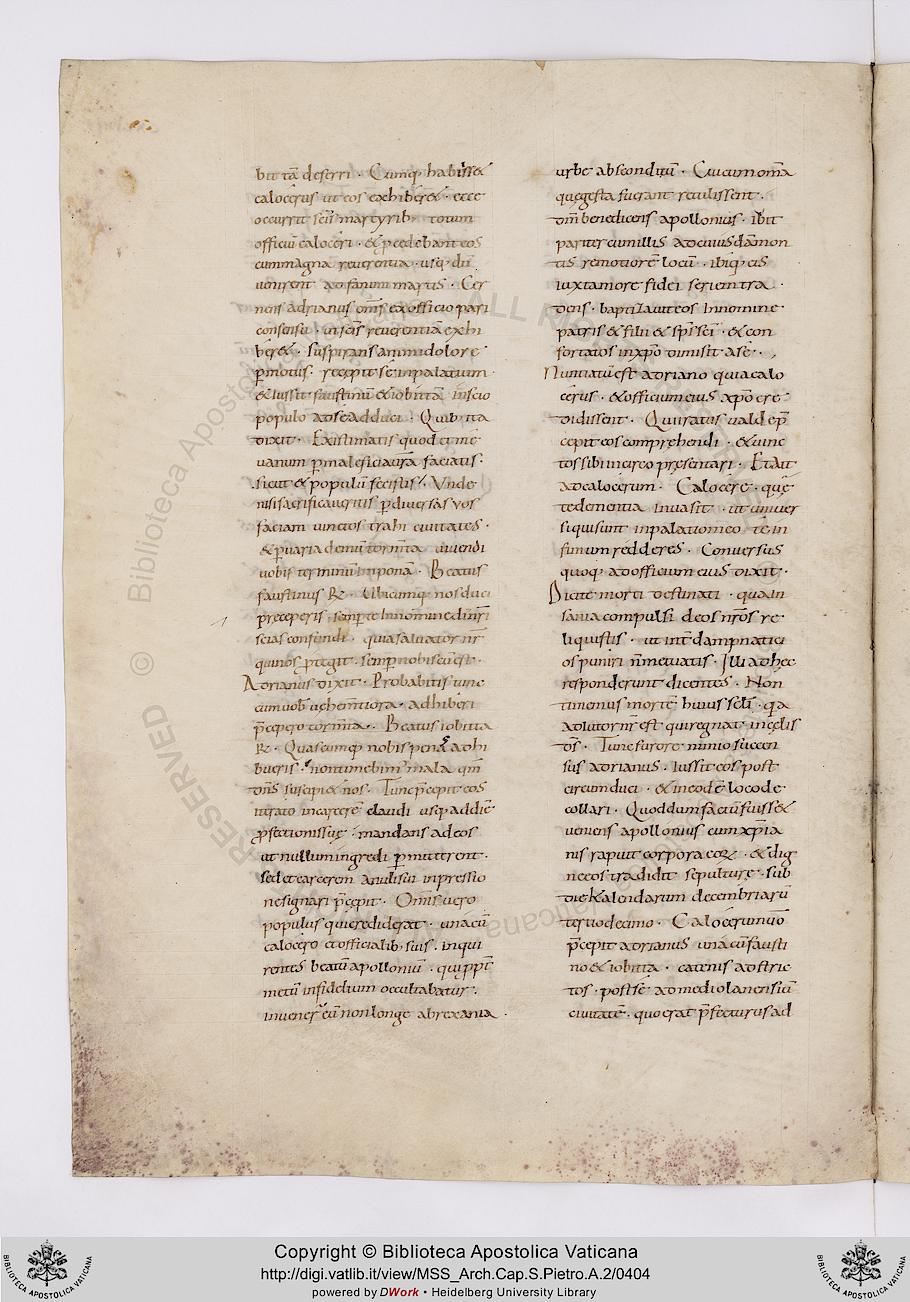 bit tā deferri · Cumq; habiss&
calocerus ut eos exhiber& · ecce
occurrit sc̄is martyrib; totum
officiū caloceri · & p̄cedebant eos
cum magna reuerentia · usq; dū
uenirent ad fanum martis · Cer
nens adrianus om̄s ex officio pari
consensu · ut sc̄is reuerentiā exhi
ber& · suspirans animi dolore
ꝑmotus · recepit se in palatium ·
& iussit faustinū & iobittā inscio
populo ad se adduci · Quib; ita
dixit · Existimatis quod et me
uanum ꝑ maleficia ur̄a faciatis ·
sicut & populū fecistis · Unde
nisi sacrificaueritis ꝑ diuersas uos
faciam uinctos trahi ciuitates ·
& ꝑ uaria demū torm̄ta uiuendi
uobis terminū imponā · Beatus
faustinus R̄ · Ubicumq; nos duci
preceperis · semꝑ te in nomine dn̄i nr̄i
scias confundi · quia saluator nr̄
qui nos ꝓtegit · semꝑ nobiscū est ·
Adrianus dixit · Probabitis tunc
cum uob̄ uehem̄tiora · adhiberi
p̄cepero torm̄ta · Beatus iobitta
R̄ · Quascumq; nobis penas adhi
bueris · non timebim; mala qm̄
dn̄s suscipi& nos · Tunc p̄cepit eos
iterato in carcerē claudi usq; ad diē
ꝓfectionis suę · mandans ad eos
ut nullum ingredi ꝑmitterent ·
sed et carcerem anuli sui inpressio
ne signari p̄cepit · Omnis uero
populus qui crediderat · una cū
calocero et officialib; suis · inqui
rentes beatū apolloniū · qui ꝓpt̄
metū infidelium occultabatur ·
inuener̄ eū non longe a brexana ·
urbe absconditū · Cui cum om̄a
quę gesta fuerant retulissent ·
om̄ benedicens apollonius · ibit
pariter cum illis ad cuiusdā mon
tis remotiorē locū · ibiq; eis
iuxta morē fidei seriem tra
dens · baptizauit eos in nomine
patris & filii & sp̄s sc̄i · & con
fortatos in xp̄o dimisit a se ·
Nuntiatū est adriano quia calo
cerus · & officium eius xp̄o cre
didissent · Qui iratus ualde p̄
cepit eos comprehendi · & uinc
tos sibi in circo presentari · Et ait
ad calocerum · Calocere · quę
te dementia inuasit · ut uniuer
si qui sunt in palatio meo te in
fimum redderes · Conuersus
quoq; ad officium eius dixit ·
Dicite morti destinati · qua in
sania compulsi deos nr̄os re
liquistis · ut int̄ dampnatici
os puniri n̄ metuatis · Illi ad hęc
responderunt dicentes · Non
timemus mortē huius scl̄i · q̄a
adiutor nr̄ est qui regnat in cęlis
ds̄ · Tunc furore nimio succen
sus adrianus · iussit eos post
circum duci · & in eodē loco de
collari · Quod dum factū fuiss&
ueniens apollonius cum xp̄ia
nis rapuit corpora eoꝝ · & dig
ne eos tradidit sepulturę · sub
die kalendarum decembriarū
tertio decimo · Calocerum uō
p̄cepit adrianus una cū fausti
no & iobitta · catenis adstric
tos · post se ad mediolanensiū
ciuitatē · quo erat ꝓfecturus ad
Copyright © Biblioteca Apostolica Vaticana
http://digi.vatlib.it/view/MSS_Arch.Cap.S.Pietro.A.2/0404
powered by DWork • Heidelberg University Library